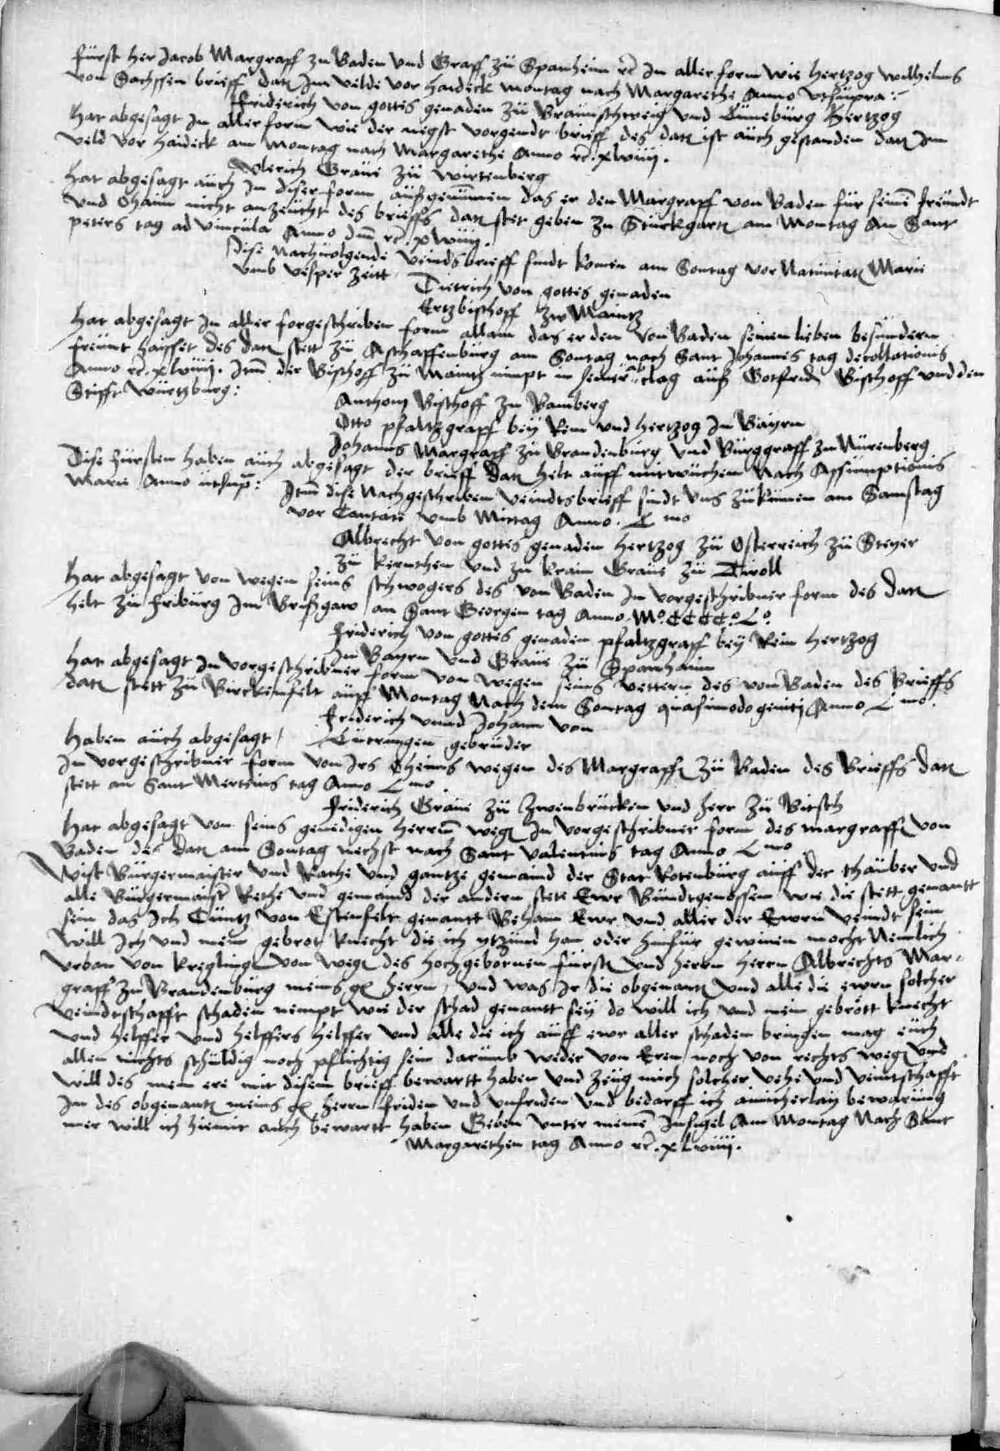 fürst her Jacob Margraff zu Baden vnd Graff zü Spanheim rc In aller form wie hertzog wilhelms
von Sachssen brieff dat Im velde vor haideck montag nach Margarethe Anno vtsupra:
Friderich von gottes genaden zü Braunschweig vnd Lüneburg hertzog
hat abgesagt In aller form wie der negst vorgendt brieff des dat ist auch gestanden dat Im
veld vor haideck am montag nach Margarethe Anno rc. xlviiij.
Vlrich Graue zü wirtenberg
hat abgesagt auch In diser form außgenumen das er den Margraff von Baden für seinē freundt
vnd Ohaim nicht anzeücht des brieffs dat stet geben zu Stückgart am Montag An Sant
peters tag ad vincula Anno dm rc. xlviiij.
Dise Nachuolgende veindsbrieff sindt komen am Sontag vor Natiuitat Marie
vmb vesper Zeitt
Dietrich von gottes genaden
Ertzbischoff zw Maintz
hat abgesagt In aller forgeschriben form allain das er dem von Baden seinen lieben besundern
freunt haisset des dat stett zü Aschaffenburg am Sontag nach Sant Johannes tag decollationis
Anno rc. xlviiij. Itm der Bischoff zü Maintz nimpt in seiner clag auß Gotfrid Bischoff vnd den
Stifft würtzburg:
Anthony Bischoff zu Bamberg
Otto pfaltzgraff bey Rein vnd hertzog In Bayrn
Johanns Margraff zü Brandenburg vnd Burggraff zu Nürenberg
Dise fürsten haben auch abgesagt der brieff dat helt auff mitwuchen Nach Assumptionis
Marie Anno utsup: Itm dise Nachgeschriben veindtsbrieff sindt vns zükumen am Samstag
vor Cantate vmb Mittag Anno. L mo
Albrecht von gottes genaden hertzog zü Osterreich zü Steyer
zü kernthen vnd zu krain Graue zü Tiroll
hat abgesagt von wegen seins schwogers des von Baden In vorgeschribner form des dat
helt zü friburg Im Brißgaw an Sant Georgen tag Anno. Mo. CCCCo. Lo.
Friderich von gottes genaden pfaltzgraff bey Rein hertzog
In Bayrn vnd Graue zü Spanhaim
hat abgesagt In vorgeschribner form von wegen seins vettern des von Baden des Brieffs
dat stett zü Birckenfelt auff Montag Nach dem Sontag quasimodo geniti Anno L mo.
Friderich vnnd Johann von
Lütringen gebrüder
haben auch abgesagt /
In vorgeschribner form von Irs Oheims wegen des Margraff zü Baden des Brieffs dat
stett an Sant Merteins tag Anno L mo.
Friderich Graue zü Zweinbrücken vnd herr zü Bitsch
hat abgesagt von seins genedigen herrn weg In vorgeschribner form des margraff von
Baden des dat am Sontag nechst nach Sant valenteins tag Anno L mo
Wist Bürgermaister vnd Rathe vnd gantze gemaind der Stat Rotenburg auff der thauber vnd
alle Burgermaist Rethe vnd gemaind der andern stete Ewr Bundtgenossen wie die stett genantt
sein das Ich Cüntz von Estenfelt genantt Beham Ewr vnd aller der Ewrn veindt sein
will Ich vnd mein gebrot knecht die ich ytzund han oder hinfür gewinen mocht Nemlich
vrban von kreglinge von wegē des hochgebornen fürsten vnd herrn herrn Albrechts Mar-
graff zu Brandenburg meins g herrn, vnd was Ir die obgenantē vnd alle die ewrn solcher
veindtschafft schaden nempt wie der schad genantt sey do will ich vnd mein gebrott knecht
vnd helffer vnd helffers helffer vnd alle die ich auff ewr aller schaden bringen mag euch
allen nichts schuldig noch pflichtig sein darumb weder von Eren noch von rechts wegē vnd
will des mein ere mit disem brieff bewartt haben vnd zeüg mich solcher vehe vnd veintschafft
In des obgenantē meins g herrn friden vnd vnfriden vnd bedarff ich ainicherlay bewarung
mer will ich hiemit auch bewartt haben Geben vnter meinē Insigel Am Montag Nach Sant
Margarethen tag Anno rc. xlviiij.